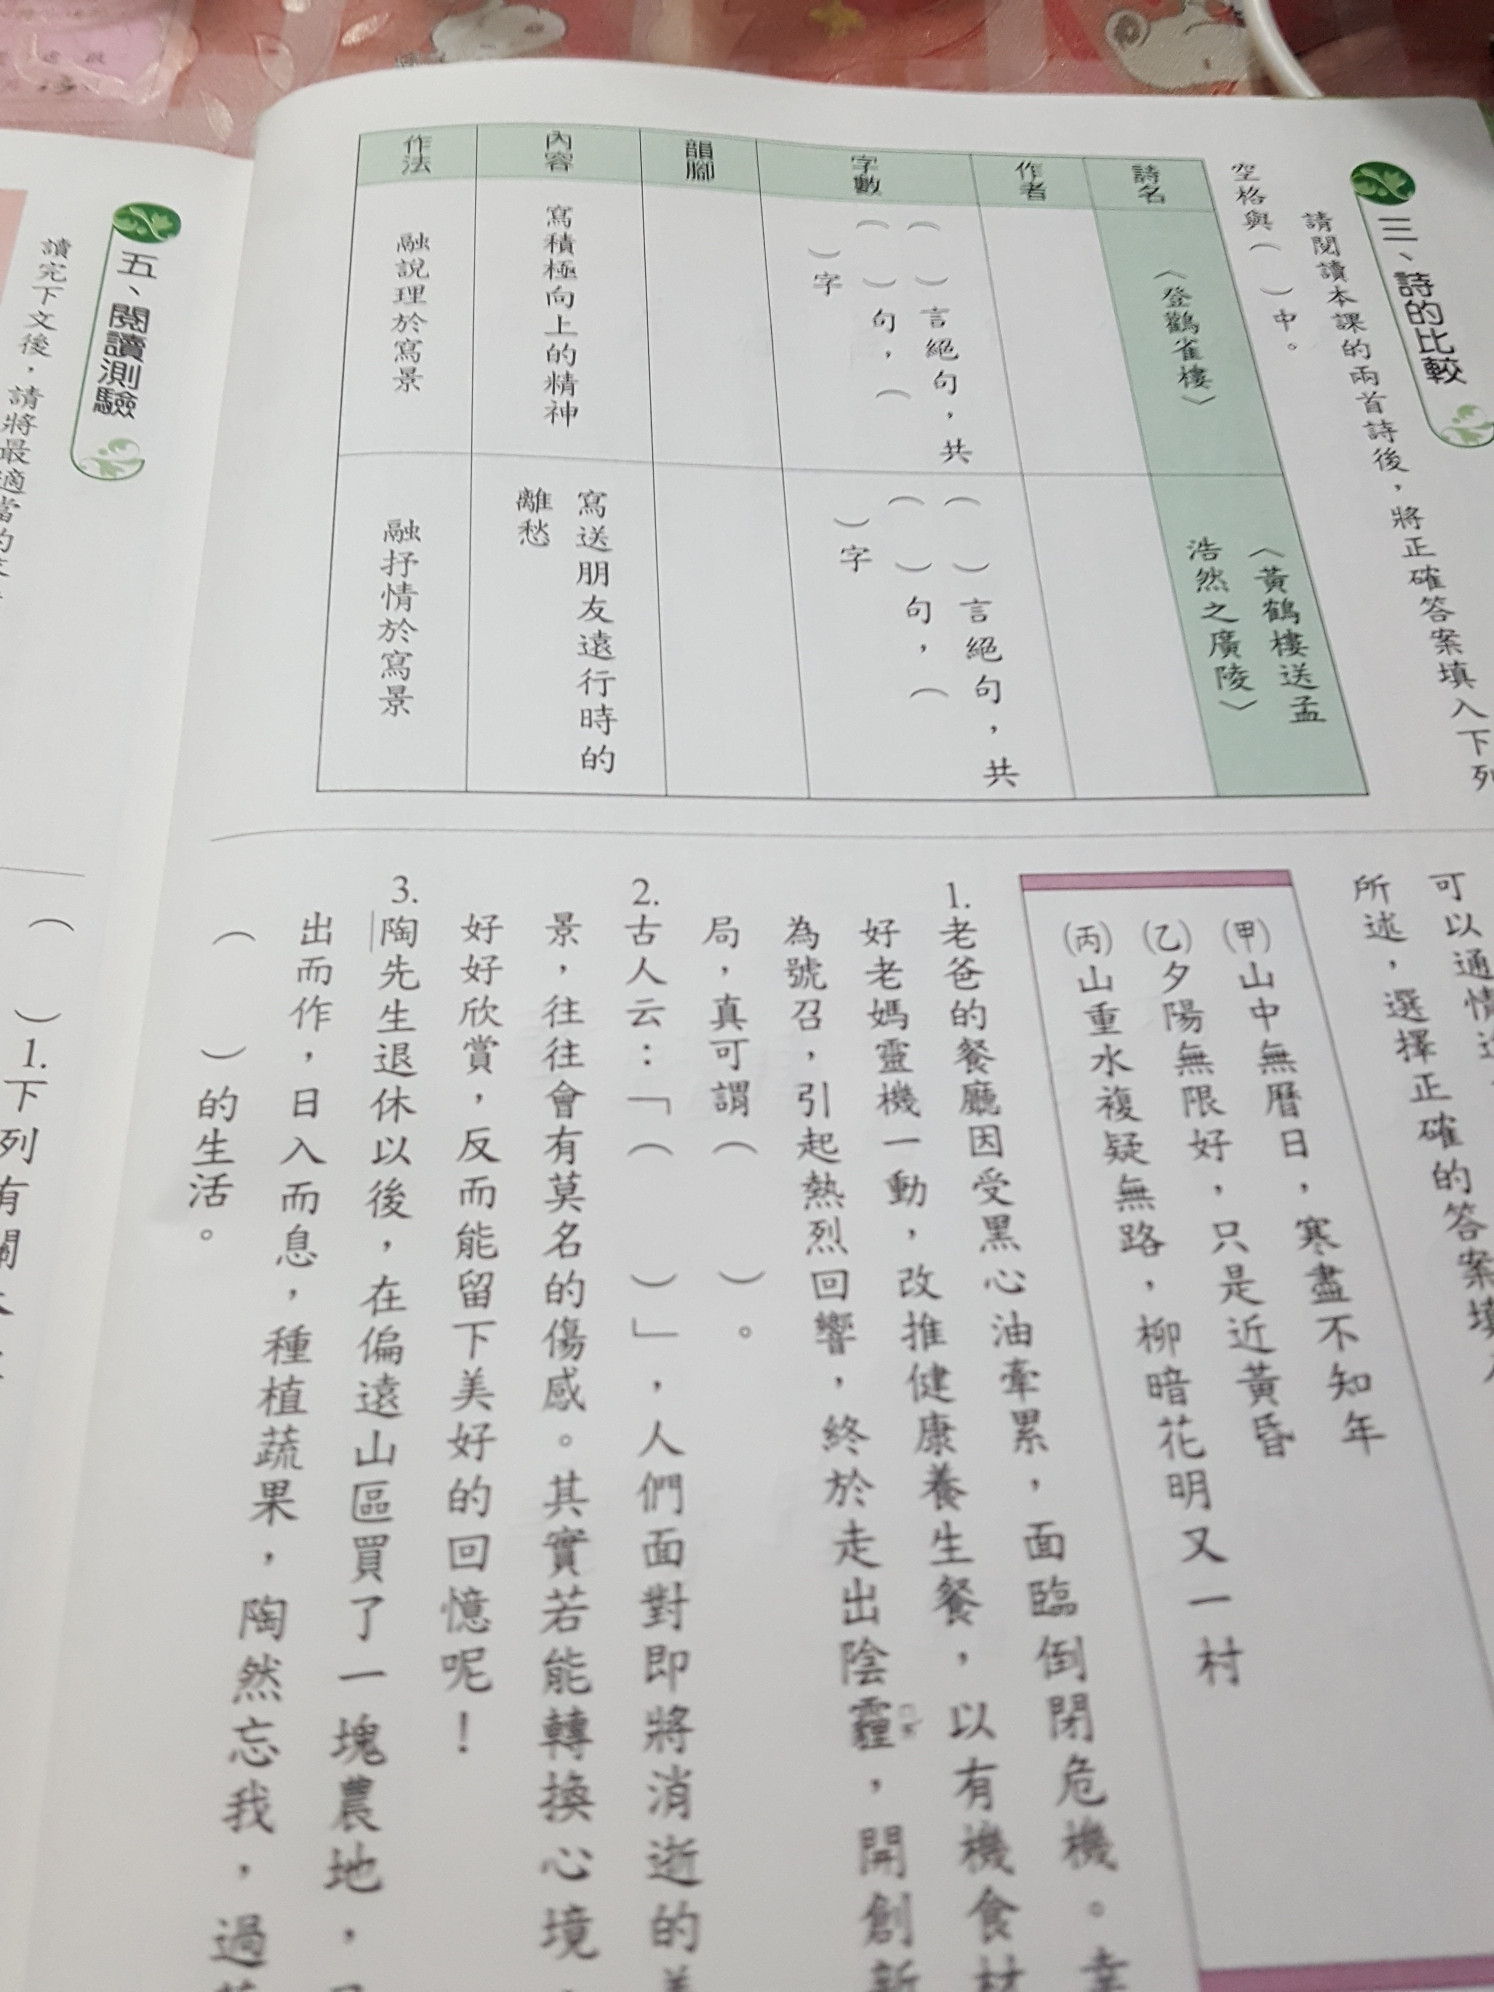 三、詩的比較
請閱讀本課的兩首詩後，將正確答案填入下列
空格與（　）中。
詩名
〈登鸛雀樓〉
〈黃鶴樓送孟
浩然之廣陵〉
作者
字數
（　）言絕句，共
（　）句，（
）字
（　）言絕句，共
（　）句，（
）字
韻腳
內容
寫積極向上的精神
寫送朋友遠行時的
離愁
作法
融說理於寫景
融抒情於寫景
可以通情
所述，選擇正確的答案填
㈙山中無曆日，寒盡不知年
㈚夕陽無限好，只是近黃昏
㈛山重水複疑無路，柳暗花明又一村
1.老爸的餐廳因受黑心油牽累，面臨倒閉危機。幸
好老媽靈機一動，改推健康養生餐，以有機食材
為號召，引起熱烈回響，終於走出陰霾，開創新
局，真可謂（　）。
2.古人云：「（　）」，人們面對即將消逝的美
景，往往會有莫名的傷感。其實若能轉換心境，
好好欣賞，反而能留下美好的回憶呢！
3.陶先生退休以後，在偏遠山區買了一塊農地，日
出而作，日入而息，種植蔬果，陶然忘我，過
（　）的生活。
五、閱讀測驗
讀完下文後，請將最適當的
（　）1.下列有關